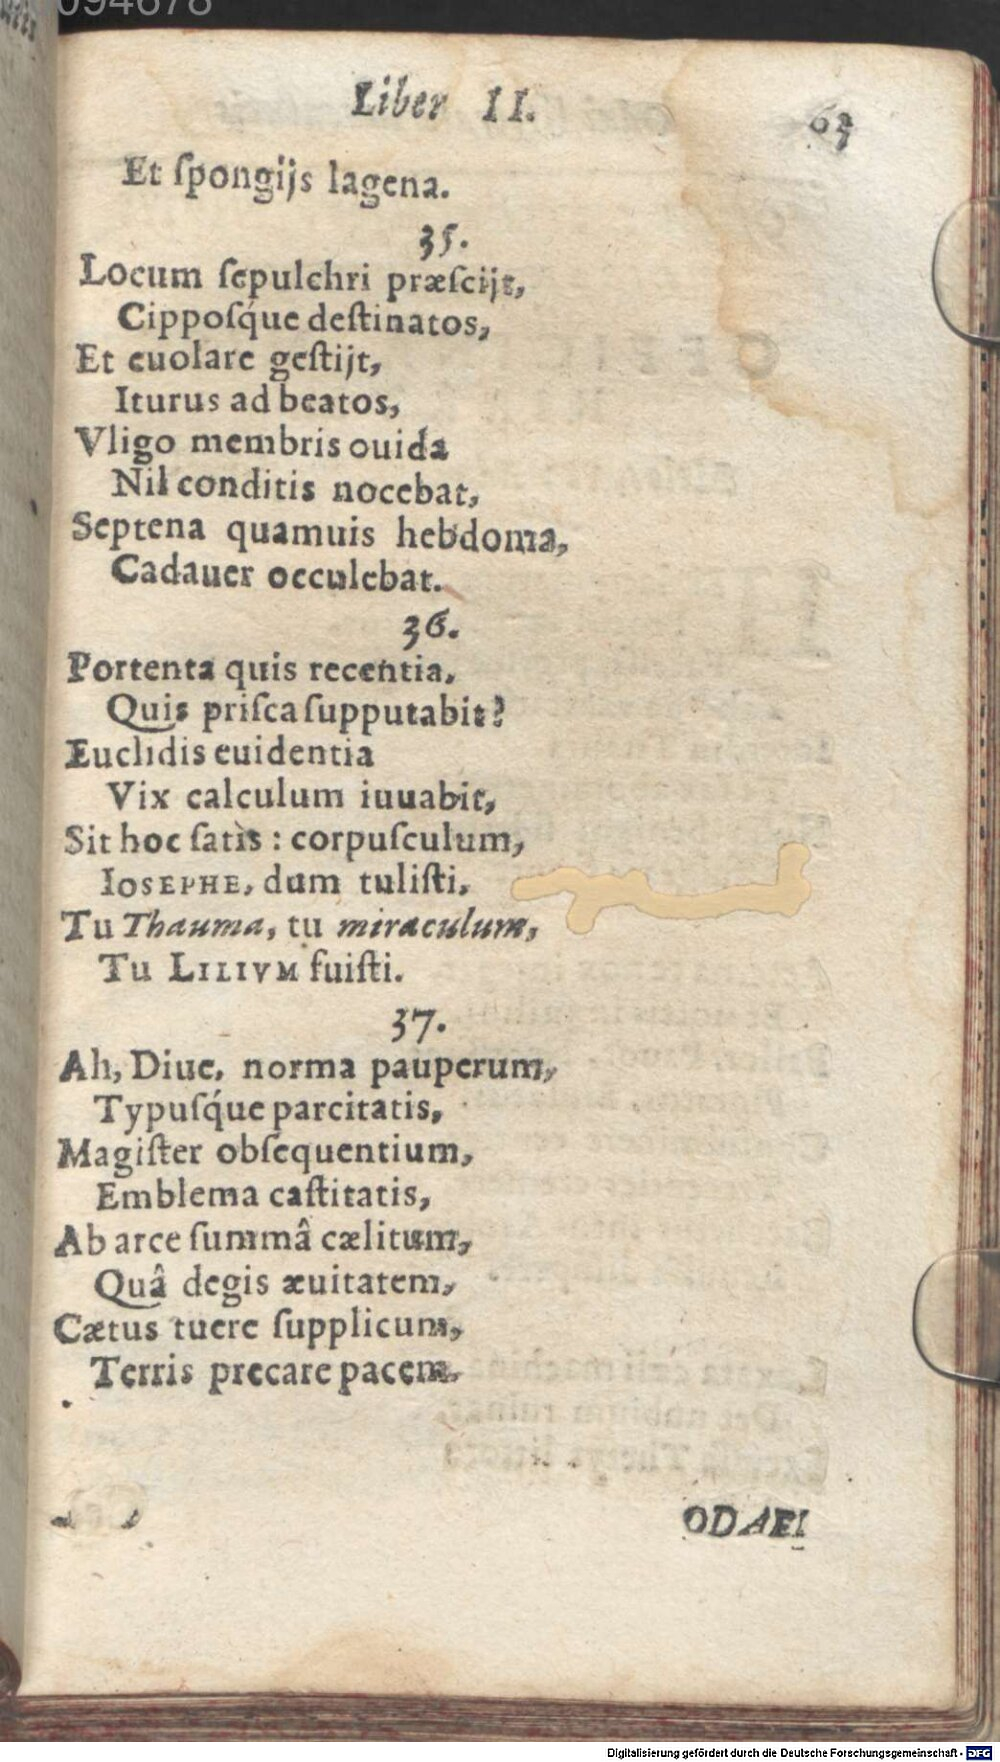 094678
Liber II.
Et ſpongijs lagena.
35.
Locum ſepulchri præſcijt,
Cippoſq́ue deſtinatos,
Et euolare geſtijt,
Iturus ad beatos,
Vligo membris ouida
Nil conditis nocebat,
Septena quamuis hebdoma,
Cadauer occulebat.
36.
Portenta quis recentia,
Quis priſca ſupputabit?
Euclidis euidentia
Vix calculum iuuabit,
Sit hoc ſatis : corpuſculum,
IOSEPHE, dum tuliſti,
Tu Thauma, tu miraculum,
Tu LILIVM fuiſti.
37.
Ah, Diue, norma pauperum,
Typuſq́ue parcitatis,
Magiſter obſequentium,
Emblema caſtitatis,
Ab arce ſummâ cælitum,
Quâ degis æuitatem,
Cætus tuere ſupplicum,
Terris precare pacem.
ODAEI
Digitalisierung gefördert durch die Deutsche Forschungsgemeinschaft - DFG